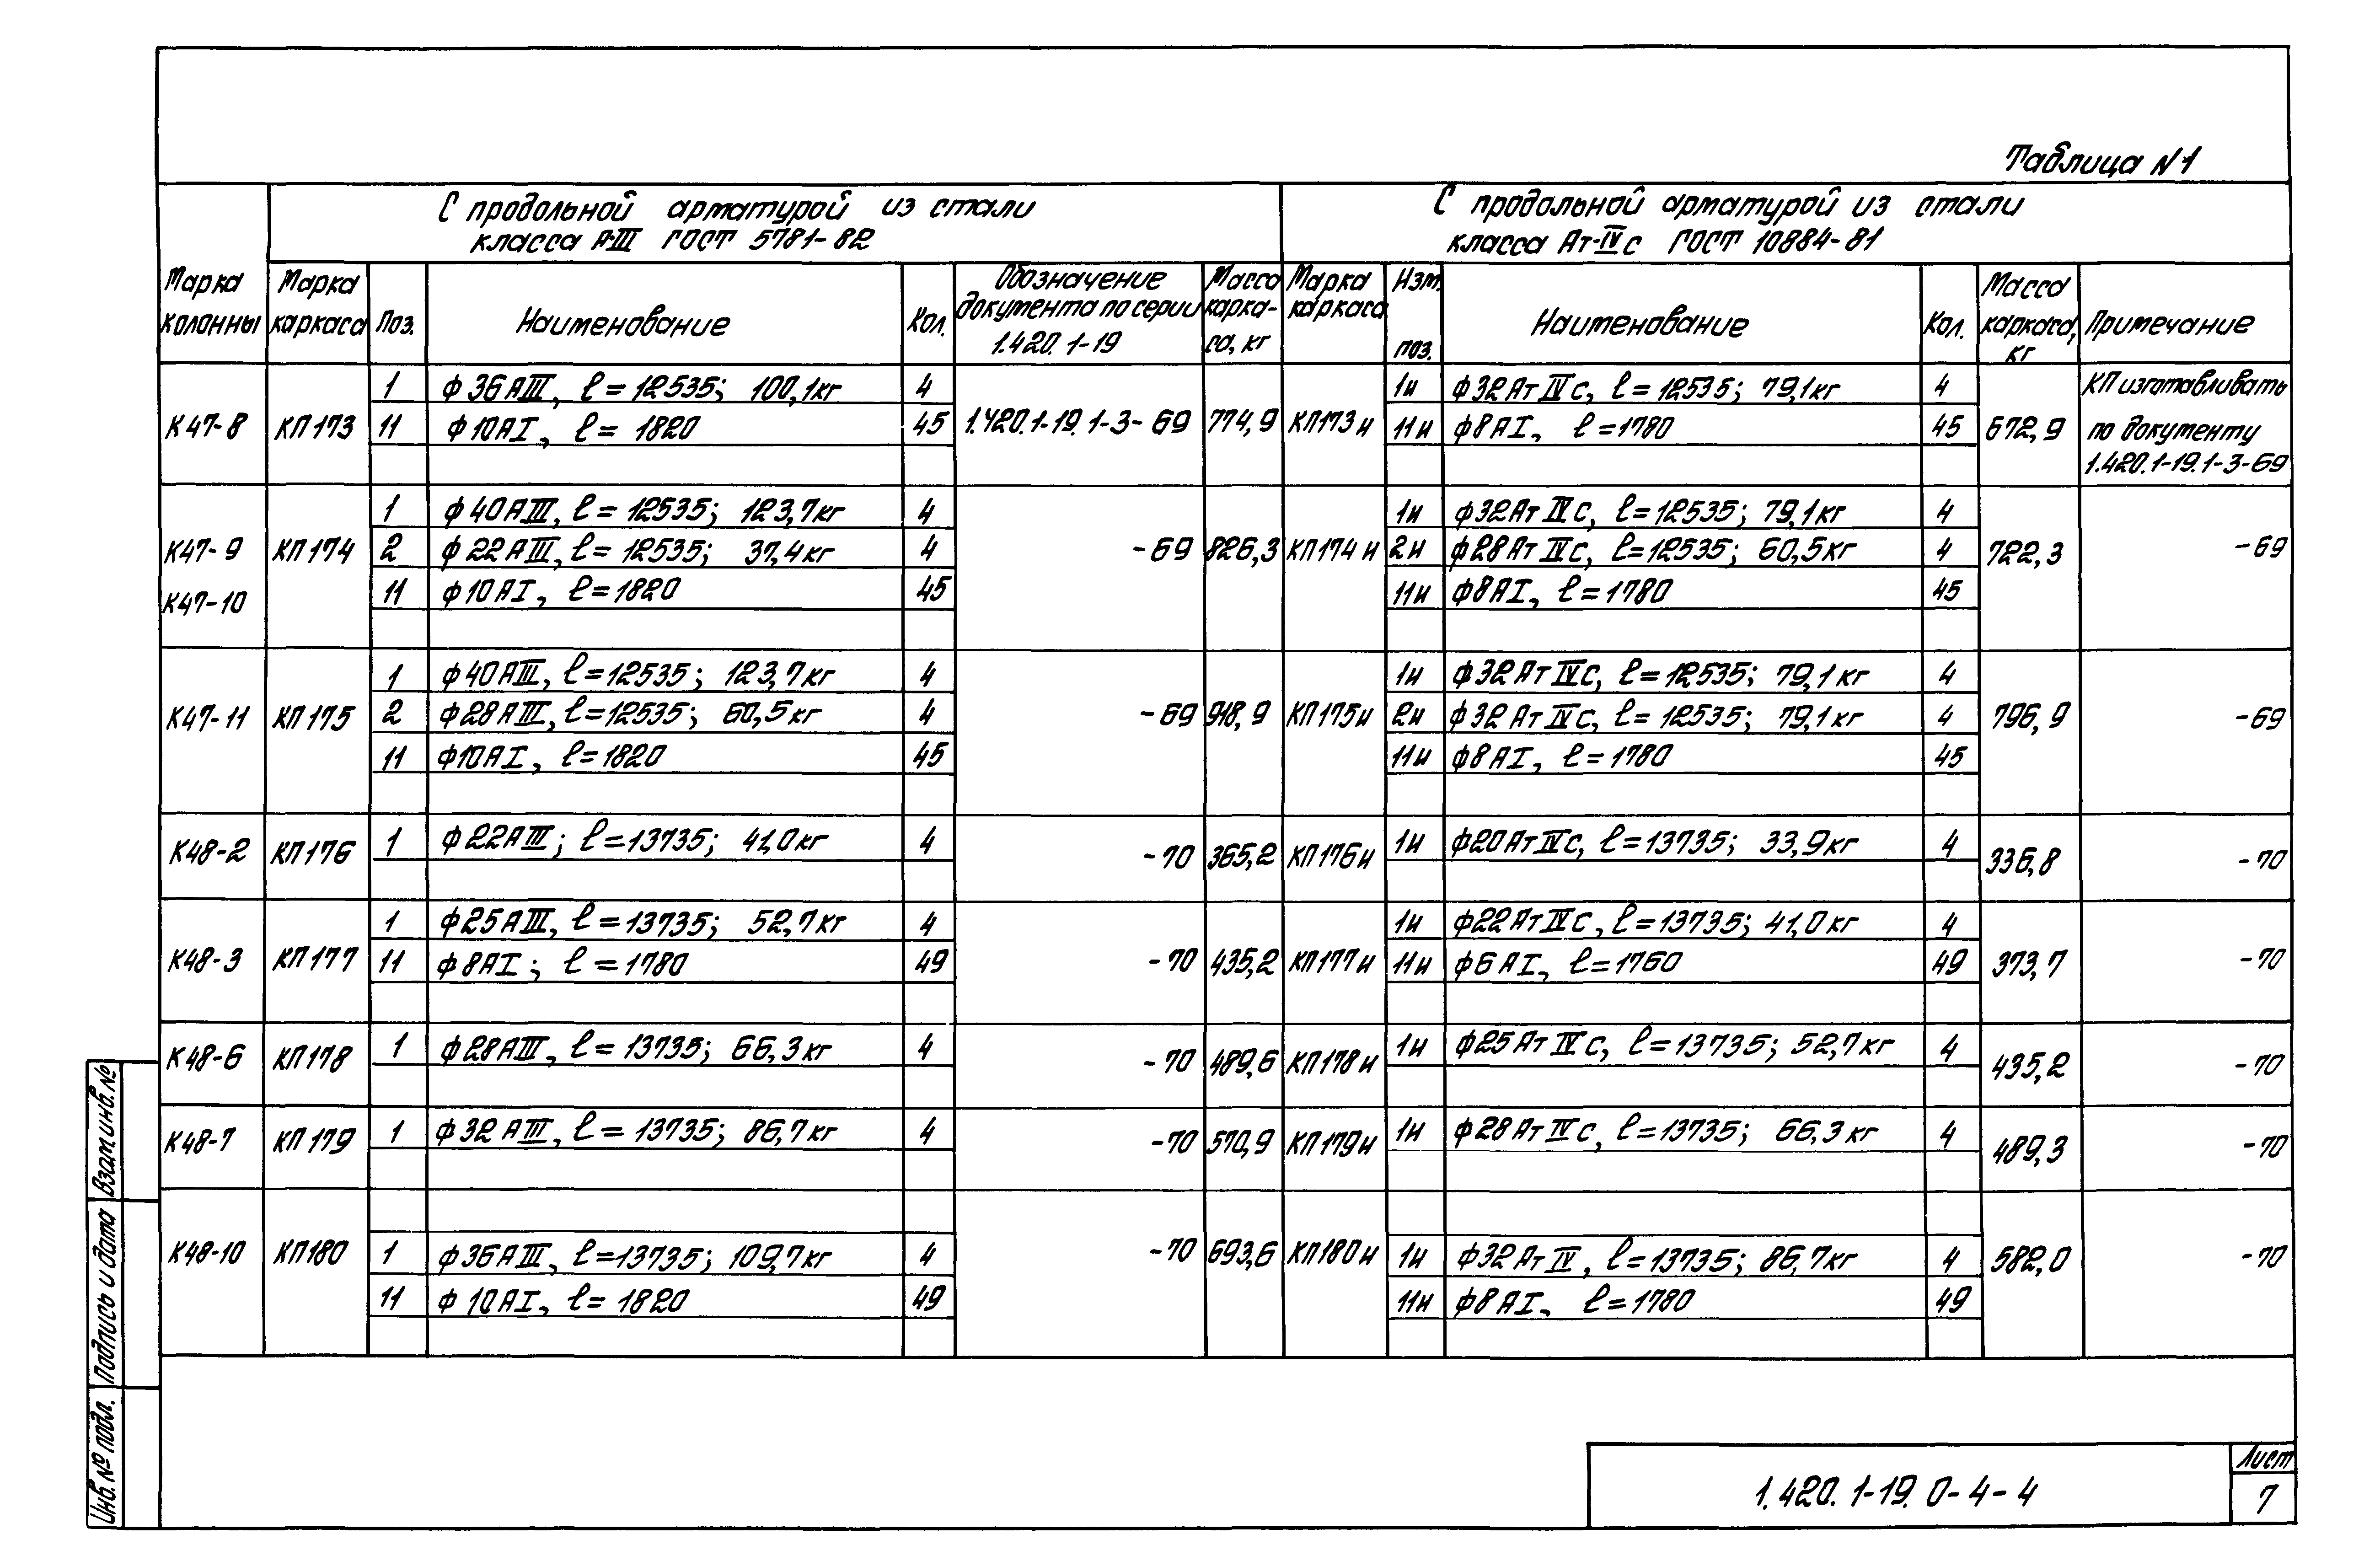 Таблица N1
С продольной арматурой из стали
класса А-III ГОСТ 5781-82
С продольной арматурой из стали
класса Ат-IVс ГОСТ 10884-81
Марка
колонны
Марка
каркаса
Поз.
Наименование
Кол.
Обозначение
документа по серии
1.420.1-19
Масса
карка-
са, кг
Марка
каркаса
Изм.
поз.
Наименование
Кол.
Масса
каркаса,
кг
Примечание
К47-8 КП173
1 ф36АIII, ℓ=12535; 100,1кг 4
11 ф10АI, ℓ= 1820 45
1.420.1-19.1-3-69 774,9 КП173и
1и ф32АтIVс, ℓ=12535; 79,1кг 4
11и ф8АI, ℓ=1780 45
672,9
КП изготавливать
по документу
1.420.1-19.1-3-69
К47-9
К47-10
КП174
1 ф40АIII, ℓ= 12535; 123,7кг 4
2 ф22АIII, ℓ= 12535; 37,4кг 4
11 ф10АI, ℓ=1820 45
-69 826,3 КП174и
1и ф32АтIVс, ℓ=12535; 79,1кг 4
2и ф28АтIVс, ℓ=12535; 60,5кг 4
11и ф8АI, ℓ=1780 45
722,3 -69
К47-11 КП175
1 ф40АIII, ℓ=12535; 123,7кг 4
2 ф28АIII, ℓ=12535; 60,5кг 4
11 ф10АI, ℓ=1820 45
-69 918,9 КП175и
1и ф32АтIVс, ℓ=12535; 79,1кг 4
2и ф32АтIVс, ℓ=12535; 79,1кг 4
11и ф8АI, ℓ=1780 45
796,9 -69
К48-2 КП176
1 ф22АIII; ℓ=13735; 41,0кг 4
-70 365,2 КП176и
1и ф20АтIVс, ℓ=13735; 33,9кг 4
336,8 -70
К48-3 КП177
1 ф25АIII, ℓ=13735; 52,7кг 4
11 ф8АI; ℓ=1780 49
-70 435,2 КП177и
1и ф22АтIVс, ℓ=13735; 41,0кг 4
11и ф6АI, ℓ=1760 49
373,7 -70
К48-6 КП178
1 ф28АIII, ℓ=13735; 66,3кг 4
-70 489,6 КП178и
1и ф25АтIVс, ℓ=13735; 52,7кг 4
435,2 -70
К48-7 КП179
1 ф32АIII, ℓ=13735; 86,7кг 4
-70 570,9 КП179и
1и ф28АтIVс, ℓ=13735; 66,3кг 4
489,3 -70
К48-10 КП180
1 ф36АIII, ℓ=13735; 109,7кг 4
11 ф10АI, ℓ= 1820 49
-70 693,6 КП180и
1и ф32АтIV, ℓ=13735; 86,7кг 4
11и ф8АI, ℓ=1780 49
582,0 -70
Взам.инв.№
Подпись и дата
Инв.№ подл.
1.420.1-19.0-4-4
Лист
7